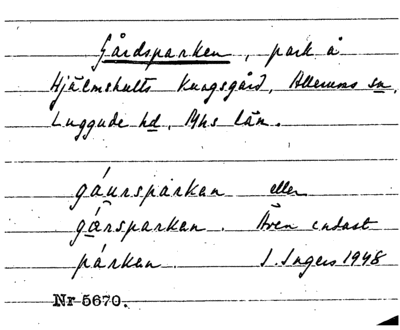 Gårdsparken, park å
Hjälmshults Kungsgård, Allerums sn,
Luggude hd, Mhs län.
gáursparkan eller
gårsparkan. Även endast
párkan. I. Ingers 1948
Nr 5670.